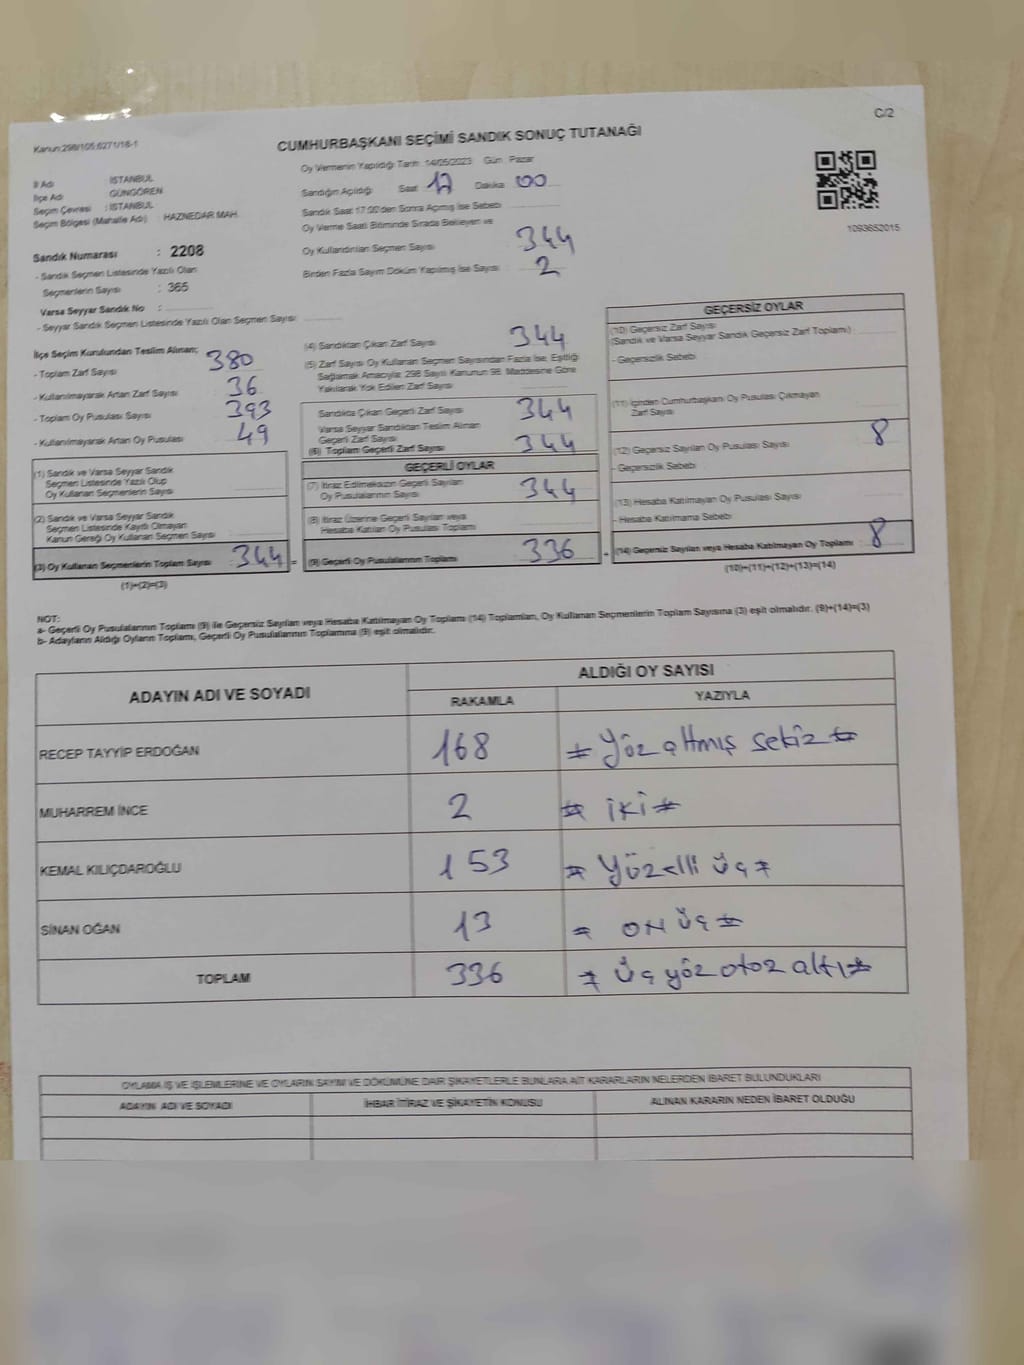 C/2
Kanun:298/105;6271/16-1
CUMHURBAŞKANI SEÇİMİ SANDIK SONUÇ TUTANAĞI
Oy Vermenin Yapıldığı Tarih 14/05/2023 Gün Pazar
İl Adı : İSTANBUL
İlçe Adı : GÜNGÖREN
Seçim Çevresi : İSTANBUL
Seçim Bölgesi (Mahalle Adı) : HAZNEDAR MAH.
Sandığın Açıldığı Saat 17 Dakika 00
Sandık Saat 17:00'den Sonra Açılmış İse Sebebi
Oy Verme Saati Bitiminde Sırada Bekleyen ve
Oy Kullandırılan Seçmen Sayısı 344
Birden Fazla Sayım Döküm Yapılmış İse Sayısı 2
1093652015
Sandık Numarası : 2208
- Sandık Seçmen Listesinde Yazılı Olan
Seçmenlerin Sayısı : 365
Varsa Seyyar Sandık No :
- Seyyar Sandık Seçmen Listesinde Yazılı Olan Seçmen Sayısı:
İlçe Seçim Kurulundan Teslim Alınan;
- Toplam Zarf Sayısı 380
- Kullanılmayarak Artan Zarf Sayısı 36
- Toplam Oy Pusulası Sayısı 393
- Kullanılmayarak Artan Oy Pusulası 49
(1) Sandık ve Varsa Seyyar Sandık
Seçmen Listesinde Yazılı Olup
Oy Kullanan Seçmenlerin Sayısı
(2) Sandık ve Varsa Seyyar Sandık
Seçmen Listesinde Kayıtlı Olmayan
Kanun Gereği Oy Kullanan Seçmen Sayısı
(3) Oy Kullanan Seçmenlerin Toplam Sayısı 344 =
(1)+(2)=(3)
(4) Sandıktan Çıkan Zarf Sayısı 344
(5) Zarf Sayısı Oy Kullanan Seçmen Sayısından Fazla İse, Eşitliği
Sağlamak Amacıyla; 298 Sayılı Kanunun 98. Maddesine Göre
Yakılarak Yok Edilen Zarf Sayısı
Sandıkta Çıkan Geçerli Zarf Sayısı 344
Varsa Seyyar Sandıktan Teslim Alınan
Geçerli Zarf Sayısı
(6) Toplam Geçerli Zarf Sayısı 344
GEÇERLİ OYLAR
(7) İtiraz Edilmeksizin Geçerli Sayılan
Oy Pusulalarının Sayısı 344
(8) İtiraz Üzerine Geçerli Sayılan veya
Hesaba Katılan Oy Pusulası Toplamı
(9) Geçerli Oy Pusulalarının Toplamı 336 +
GEÇERSİZ OYLAR
(10) Geçersiz Zarf Sayısı
(Sandık ve Varsa Seyyar Sandık Geçersiz Zarf Toplamı)
- Geçersizlik Sebebi
(11) İçinden Cumhurbaşkanı Oy Pusulası Çıkmayan
Zarf Sayısı
(12) Geçersiz Sayılan Oy Pusulası Sayısı 8
- Geçersizlik Sebebi
(13) Hesaba Katılmayan Oy Pusulası Sayısı
- Hesaba Katılmama Sebebi
(14) Geçersiz Sayılan veya Hesaba Katılmayan Oy Toplamı : 8
(10)+(11)+(12)+(13)=(14)
NOT:
a- Geçerli Oy Pusulalarının Toplamı (9) ile Geçersiz Sayılan veya Hesaba Katılmayan Oy Toplamı (14) Toplamları, Oy Kullanan Seçmenlerin Toplam Sayısına (3) eşit olmalıdır. (9)+(14)=(3)
b- Adayların Aldığı Oyların Toplamı, Geçerli Oy Pusulalarının Toplamına (9) eşit olmalıdır.
ADAYIN ADI VE SOYADI ALDIĞI OY SAYISI
RAKAMLA YAZIYLA
RECEP TAYYİP ERDOĞAN 168 * Yüz altmış sekiz *
MUHARREM İNCE 2 * iki *
KEMAL KILIÇDAROĞLU 153 * Yüzelli üç *
SİNAN OĞAN 13 * on üç *
TOPLAM 336 * Üç yüz otuz altı *
OYLAMA İŞ VE İŞLEMLERİNE VE OYLARIN SAYIM VE DÖKÜMÜNE DAİR ŞİKAYETLERLE BUNLARA AİT KARARLARIN NELERDEN İBARET BULUNDUKLARI
ADAYIN ADI VE SOYADI İHBAR İTİRAZ VE ŞİKAYETİN KONUSU ALINAN KARARIN NEDEN İBARET OLDUĞU